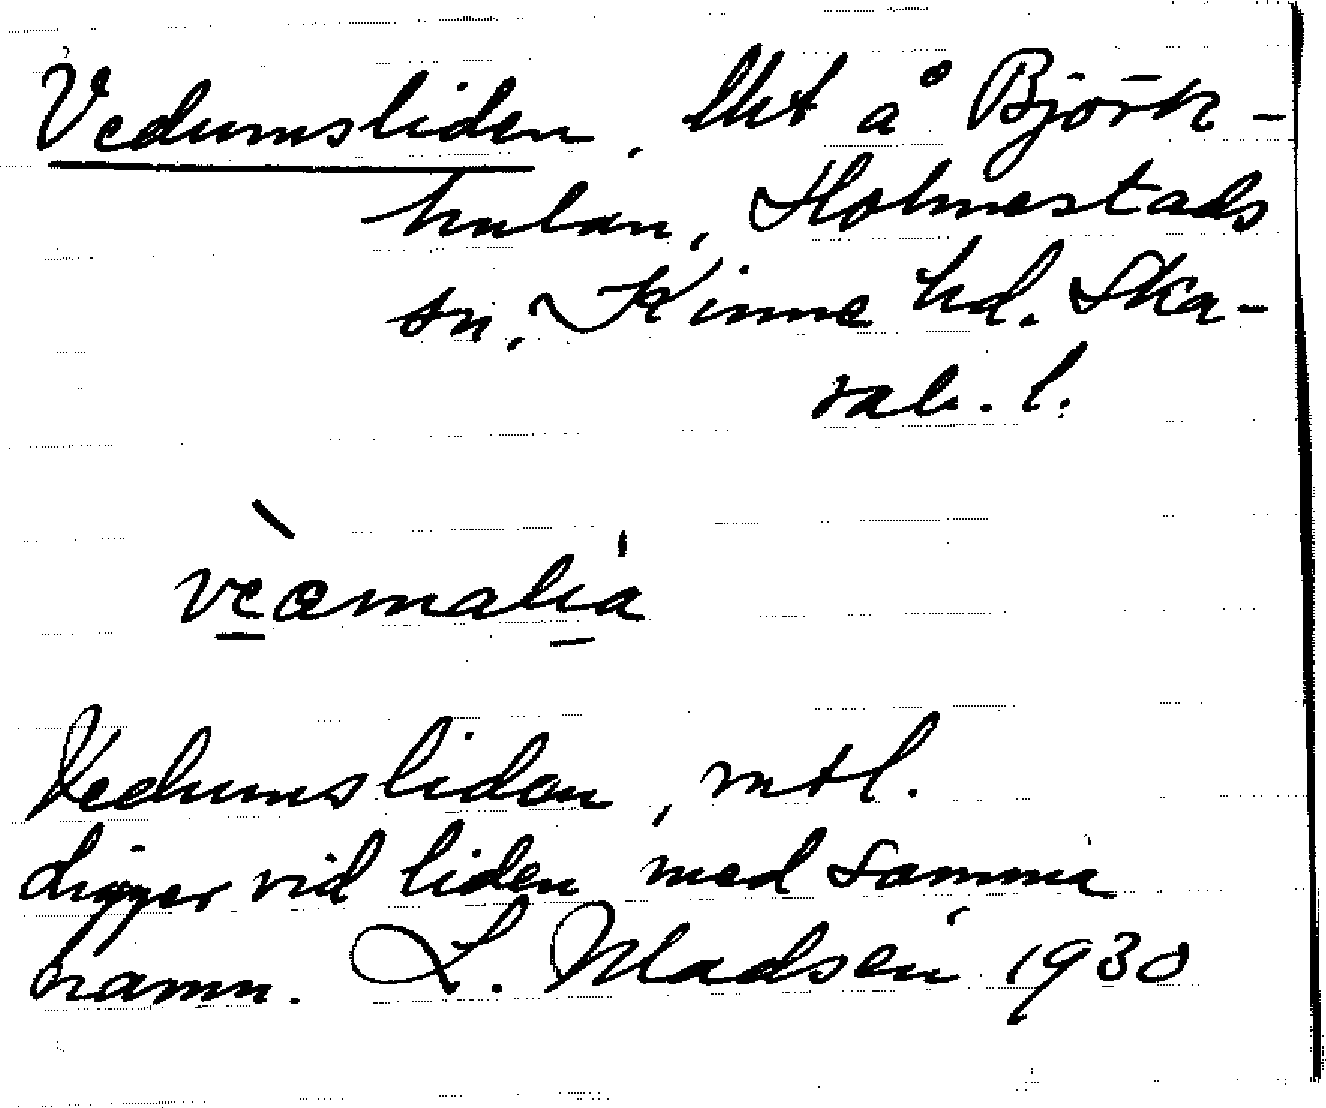 Vedumsliden, lht å Björk-
kulan, Holmestads
sn, Kinne hd. Ska-
rab. l.
Vedumsliden, mtl.
Ligger vid liden med samma
namn. L. Madsén 1930